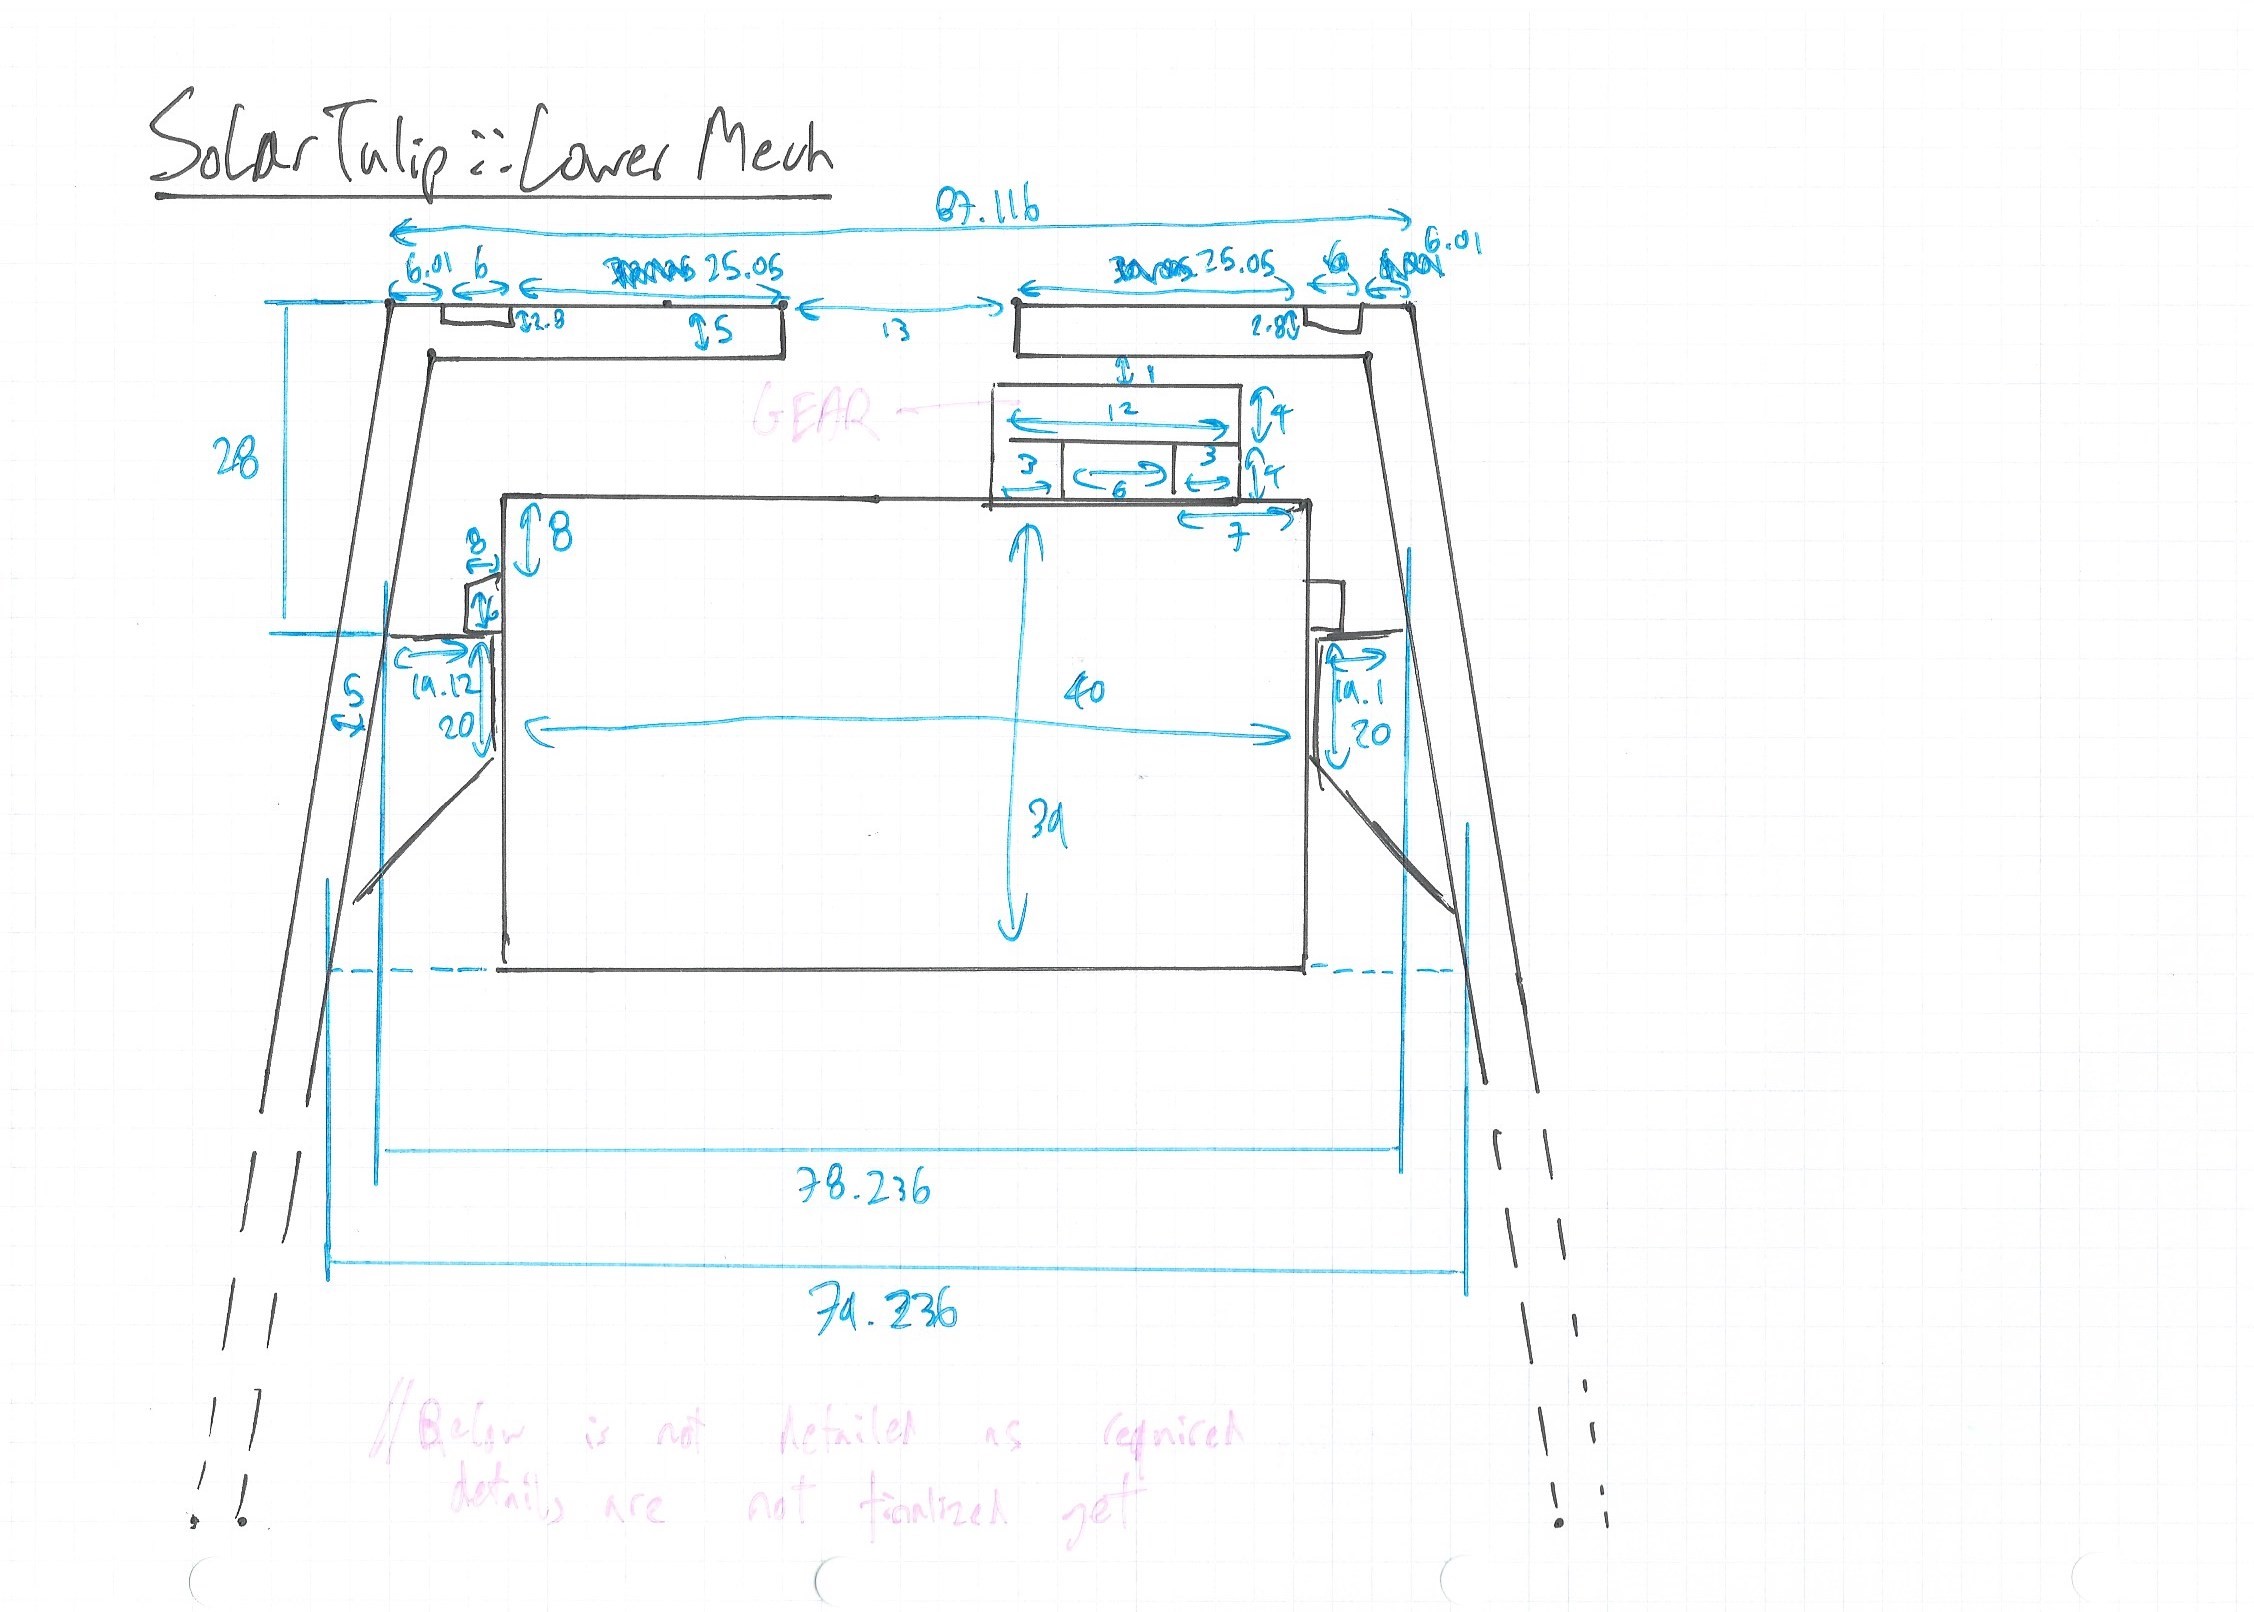 Solar Tulip :: Lower Mech
87.116
6.01 6 25.05 25.05 6 6.01
2.8 5 13 2.8
1
GEAR 12 4
28 3 6 3 4
8 7
8
6
5 19.12 40 19.1
20 20
39
78.236
79.236
//Below is not detailed as required
details are not finalized yet